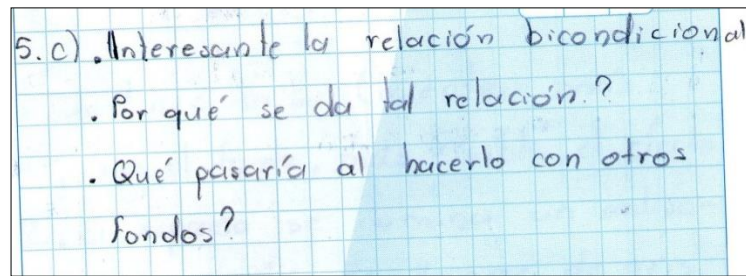 5. c) . Interesante la relación bicondicional
. Por qué se da tal relación.?
. Qué pasaría al hacerlo con otros
fondos?